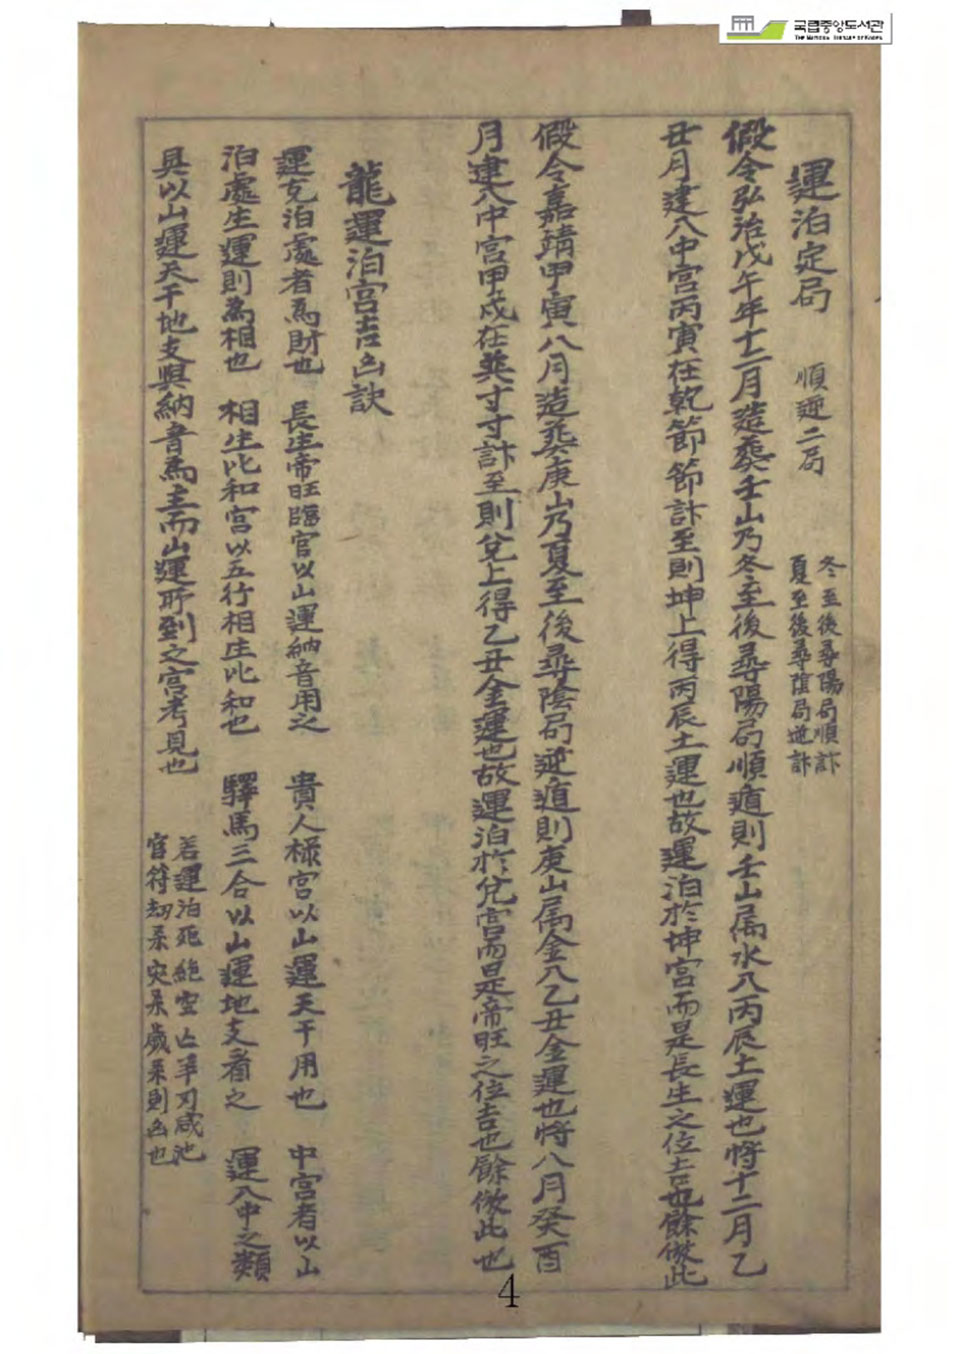 국립중앙도서관
運泊定局 順逆二局 冬至後尋陽局順計
夏至後尋陰局逆計
假令弘治戊午年十二月造葬壬山乃冬至後尋陽局順遁則壬山屬水入丙辰土運也將十二月乙
丑月建入中宮丙寅在乾節節計至則坤上得丙辰土運也故運泊於坤宮而是長生之位吉也餘倣此
假令嘉靖甲寅八月造葬庚山乃夏至後尋陰局逆遁則庚山屬金入乙丑金運也將八月癸酉
月建入中宮甲戌在巽寸寸計至則兌上得乙丑金運也故運泊於兌宮而是帝旺之位吉也餘倣此也
龍運泊宮吉凶訣
運克泊處者爲財也 長生帝旺臨官以山運納音用之 貴人祿宮以山運天干用也 中宮者以山
泊處生運則爲相也 相生比和宮以五行相生比和也 驛馬三合以山運地支看之 運入中之類
具以山運天干地支與納音爲主而山運所到之宮考見也 若運泊死絶空亡羊刃咸池
官符劫杀灾杀歲杀則凶也
4